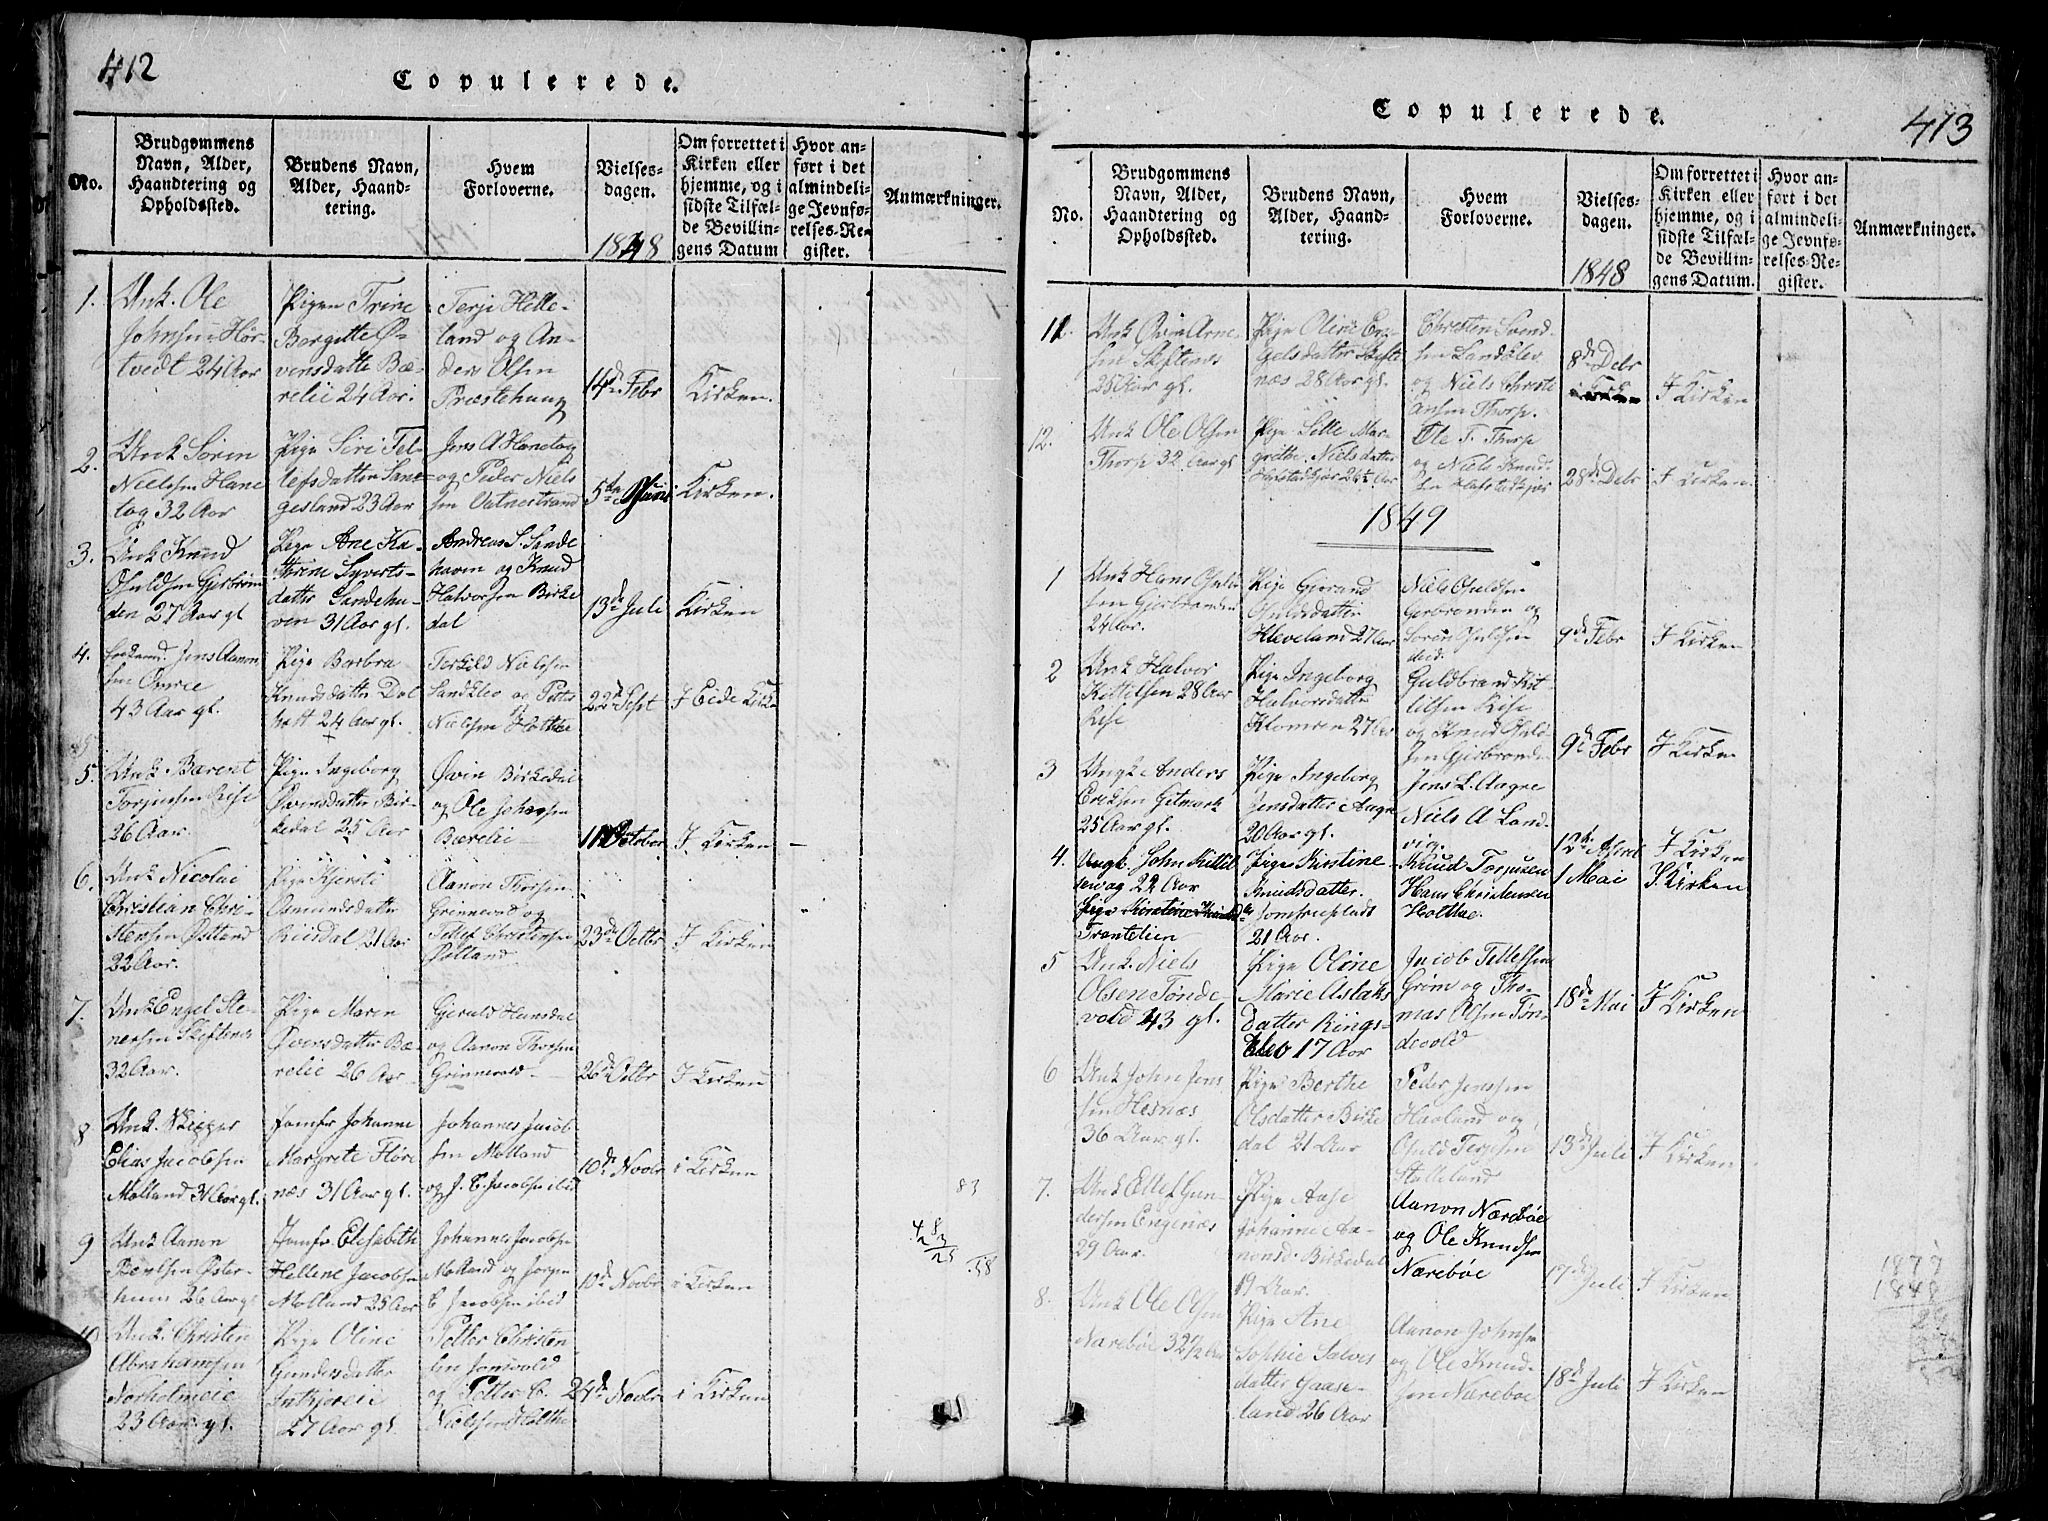 412
Copulerede.
No.
Brudgommens
Navn, Alder,
Haandtering og
Opholdssted.
Brudens Navn,
Alder, Haand-
tering.
Hvem
Forloverne.
Vielses-
dagen.
1848
Om forrettet i
Kirken eller
hjemme, og i
sidste Tilfæl-
de Bevillin-
gens Datum
Hvor an-
ført i det
almindeli-
ge Jevnfø-
relses-Re-
gister.
Anmærkninger.
1.
Unk. Ole
Johnsen Hør-
tvedt 24 Aar
Pigen Trine
Borgitte Ø-
vensdatte Bæ-
relie 24 Aar.
Terje Helle-
land og An-
ders Olsen
Præstehaug
14de Febr
Kirken.
2.
Unk Sören
Nielsen Hane
tog 32 Aar
Pige Siri Tel-
lefsdatter San-
gesland 23 Aar
Jens A Hanetog
og Peder Niels
sen Vatnestrand
5te Juni
Kirken.
3.
Unk Knud
Osuldsen Gjerbron
den 27 Aar gl
Pige Ane Ka-
thrine Syverts-
datter Sandeha-
ven 31 Aar gl.
Andreas S. Sande
haven og Knud
Halvorsen Birke
dal
13de Juli
Kirken
4.
Jens Aanon
sen
43 Aar gl.
Pige Barbra
Knudsdatter Dal
holt 24 Aar gl.
Terkild Nielsen
Landklev og Petter
Nielsen Holthe
22de Sept
I Eide Kirk
5
Unk Bærent
Torjussen Rise
26 Aar.
Pige Ingeborg
Øvensdatter Bir-
kedal 25 Aar
Øvin Birkedal
og Ole Johnsen
Bærelie
October
I Kirken
6.
Unk Nicolai
Christian Chri-
stensen Østland
22 Aar.
Pige Kjersti
Osmundsdatter
Riisdal 21 Aar
Aanon Thorsen
Grinnevold og
Tellef Christensen
Østland
23de Octbr
I Kirken
7.
Unk Engel Ste-
nersen Skiftenes
32 Aar.
Pige Maren
Øvensdatter Bæ-
relie 26 Aar
Gjerald Hunsdal
og Aanon Thorsen
Grinnevold
26de Octbr
I Kirken
8
Unk. Skipper
Elias Jacobsen
Molland 31 Aar gl.
Jomfr Johanne
Margrete Flöre
næs 31 Aar gl.
Johannes Jacob
sen Molland
og J. C. Jacobsen ibid
10de Novbr
i Kirken
9
Unk Aanon
Øster-
huus 26 Aar gl
Jomfr Elisabeth
Hellene Jacobsen
Molland 25 Aar
Johannes Jacobsen
Molland og Jørgen
C Jacobsen ibid
10de Novbr
i Kirken
10
Unk. Christen
Abrahamsen
Norholmeie
23 Aar gl.
Pige Oline
Gundersdatter
Inkjereie
27 Aar gl
Petter Christen
sen
og Petter C.
Nielsen Holthe
24de Novbr
i Kirken
83
58
413
Copulerede.
No.
Brudgommens
Navn, Alder,
Haandtering og
Opholdssted.
Brudens Navn,
Alder, Haand-
tering.
Hvem
Forloverne.
Vielses-
dagen.
1848
Om forrettet i
Kirken eller
hjemme, og i
sidste Tilfæl-
de Bevillin-
gens Datum.
Hvor an-
ført i det
almindeli-
ge Jevnfø-
relses-Re-
gister.
Anmærkninger.
11.
Unk Øvin Arne
sen Skiftenes
25 Aar gl.
Pige Oline En-
gelsdatter Skifte
næs 28 Aar gl.
Christen Svend
sen Landklev
og Niels Christi
ansen Thorp.
8de Debr
I Kirken
12.
Unk Ole Olsen
Thorp 32 Aar gl
Pige Sille Mar-
grethe Nielsdatter
26 Aar
Ole T. Thorp
og Niels Knud
sen
28de Debr
I Kirken
1849
1
Unk Hans Osuld
sen Gjerbronden
24 Aar.
Pige Gjerand
Osuldsdatter
Kleveland 27 Aar
Niels Osuldsen
Gerbronden og
Sören Osuldsen
ibid.
9de Febr
I Kirken
2
Unk Halvor
Kittilsen 28 Aar
Rise
Pige Ingeborg
Halvorsdatter
Klomren 27 Aar
Guldbrand Kit-
tilsen Rise
og Knud Osuld
sen Gjerbronden
9de Febr
I Kirken
3
Ungk Anders
Eriksen Gitmark
25 Aar gl.
Pige Ingeborg
Jensdatter Aagre
20 Aar gl.
Jens L. Aagre
Niels A Land-
vig.
12te April
I Kirken
4.
Ungk. John Kittil
sen og 22 Aar
Trontelien
Pige Kirstine
Knudsdatter
Jomfrueplads
21 Aar.
Knud Torjusen
Hans Christensen
Holthe.
1 Mai
I Kirken
5
Unk. Niels
Olsen Tønde-
vold 43 gl.
Pige Oline
Marie Aslaks
datter Rings-
klev 17 Aar
Jacob Tellefsen
Grøm og Tho-
mas Olsen Tøn-
devold
18de Mai
I Kirken
6
Unk John Jens
sen Hesnæs
36 Aar gl.
Pige Berthe
Olsdatter Birke
dal 21 Aar
Peder Jenssen
Haaland og
Osuld Terjesen
Stalleland
13de Juli
I Kirken
7.
Unk Ellef Gun-
dersen Engenæs
29 Aar.
Pige Aase
Johanne Aa-
nonsd. Birkedal
19 Aar.
Aanon Nærebøe
og Ole Knudsen
Nærebøe
17de Juli
I Kirken
8.
Unk Ole Olsen
Nærebøe 32 1/2 Aar
Pige Ane
Sophie Salves
datter Gaase-
land 26 Aar
Aanon Johnsen
og Ole Knud
sen Nærebøe
18de Juli
I Kirken
1877
1848